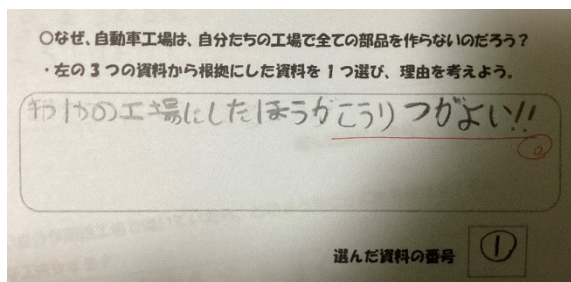 ○なぜ、自動車工場は、自分たちの工場で全ての部品を作らないのだろう？
・左の３つの資料から根拠にした資料を１つ選び、理由を考えよう。
の工場にしたほうがこうりつがよい!!
選んだ資料の番号
①